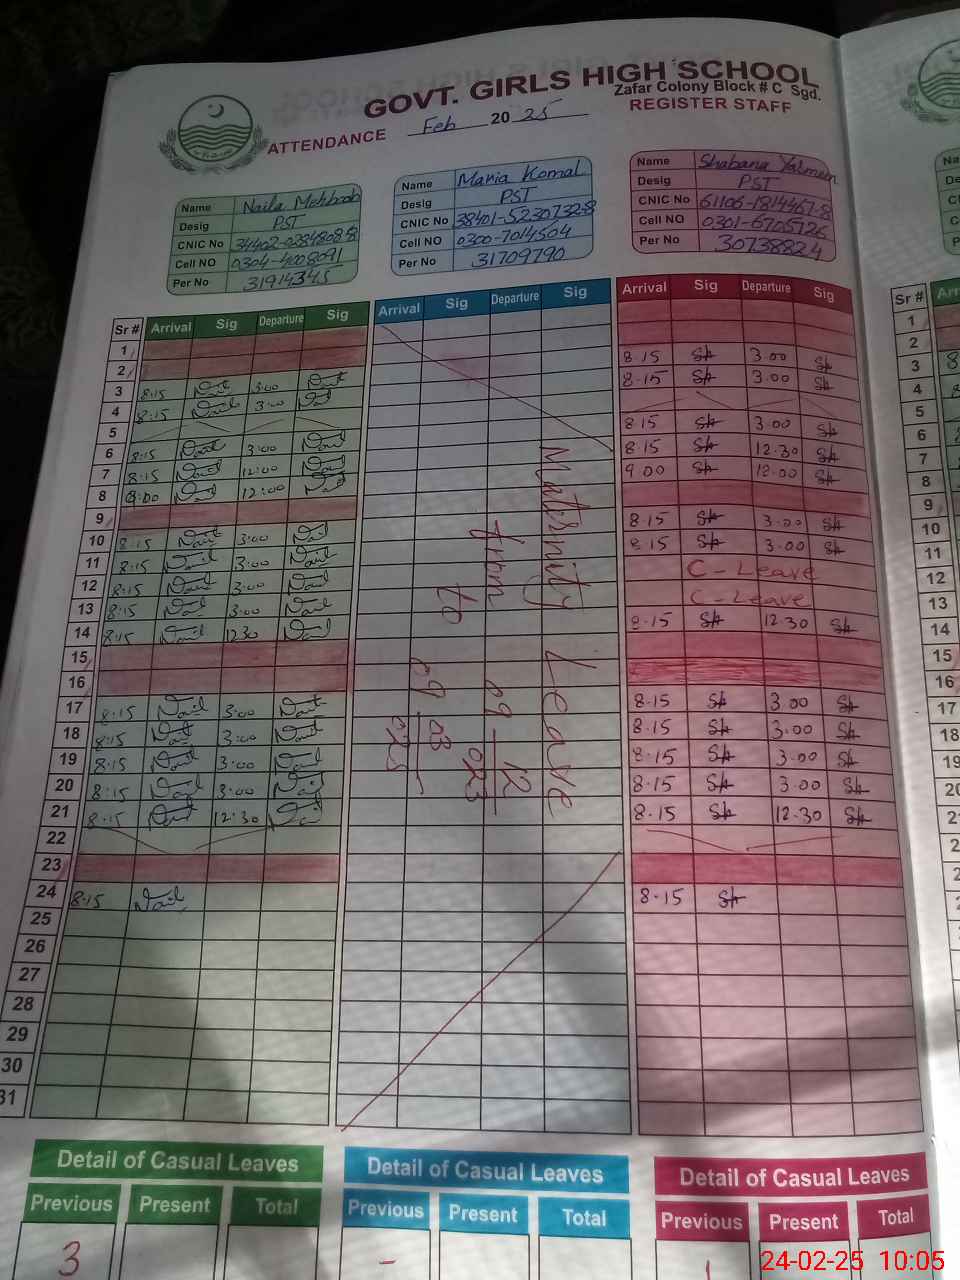 GOVT. GIRLS HIGH SCHOOL
Zafar Colony Block # C Sgd.
ATTENDANCE Feb 20 25 REGISTER STAFF
Name Naila Mehboob
Desig PST
CNIC No 34402-0284808-8
Cell NO 0304-4008091
Per No 31914345
Name Maria Komal
Desig PST
CNIC No 38401-5230732-8
Cell NO 0300-7014504
Per No 31709790
Name Shabana Yasmeen
Desig PST
CNIC No 61106-1814467-8
Cell NO 0301-6705726
Per No 30738824
Sr # Arrival Sig Departure Sig Arrival Sig Departure Sig Arrival Sig Departure Sig
1
2
3 8:15 Nail 3:00 Nail 8.15 Sh 3.00 Sh
4 8:15 Nail 3:00 Nail 8.15 Sh 3.00 Sh
5
6 8:15 Nail 3:00 Nail 8.15 Sh 3.00 Sh
7 8:15 Nail 12:00 Nail 8.15 Sh 12.30 Sh
8 9:00 Nail 12:00 Nail 9.00 Sh 12.00 Sh
9
10 8:15 Nail 3:00 Nail 8.15 Sh 3.00 Sh
11 8:15 Nail 3:00 Nail 8.15 Sh 3.00 Sh
12 8:15 Nail 3:00 Nail C-Leave
13 8:15 Nail 3:00 Nail C-Leave
14 8:15 Nail 12:30 Nail 8.15 Sh 12.30 Sh
15
16
17 8:15 Nail 3:00 Nail 8.15 Sh 3.00 Sh
18 8:15 Nail 3:00 Nail 8.15 Sh 3.00 Sh
19 8:15 Nail 3:00 Nail 8.15 Sh 3.00 Sh
20 8:15 Nail 3:00 Nail 8.15 Sh 3.00 Sh
21 8:15 Nail 12:30 Nail 8.15 Sh 12.30 Sh
22
23
24 8:15 Nail 8.15 Sh
25
26
27
28
29
30
31
Maternity Leave
from 09 12
to 09 03
025
Detail of Casual Leaves Detail of Casual Leaves Detail of Casual Leaves
Previous Present Total Previous Present Total Previous Present Total
3 - 1
24-02-25 10:05